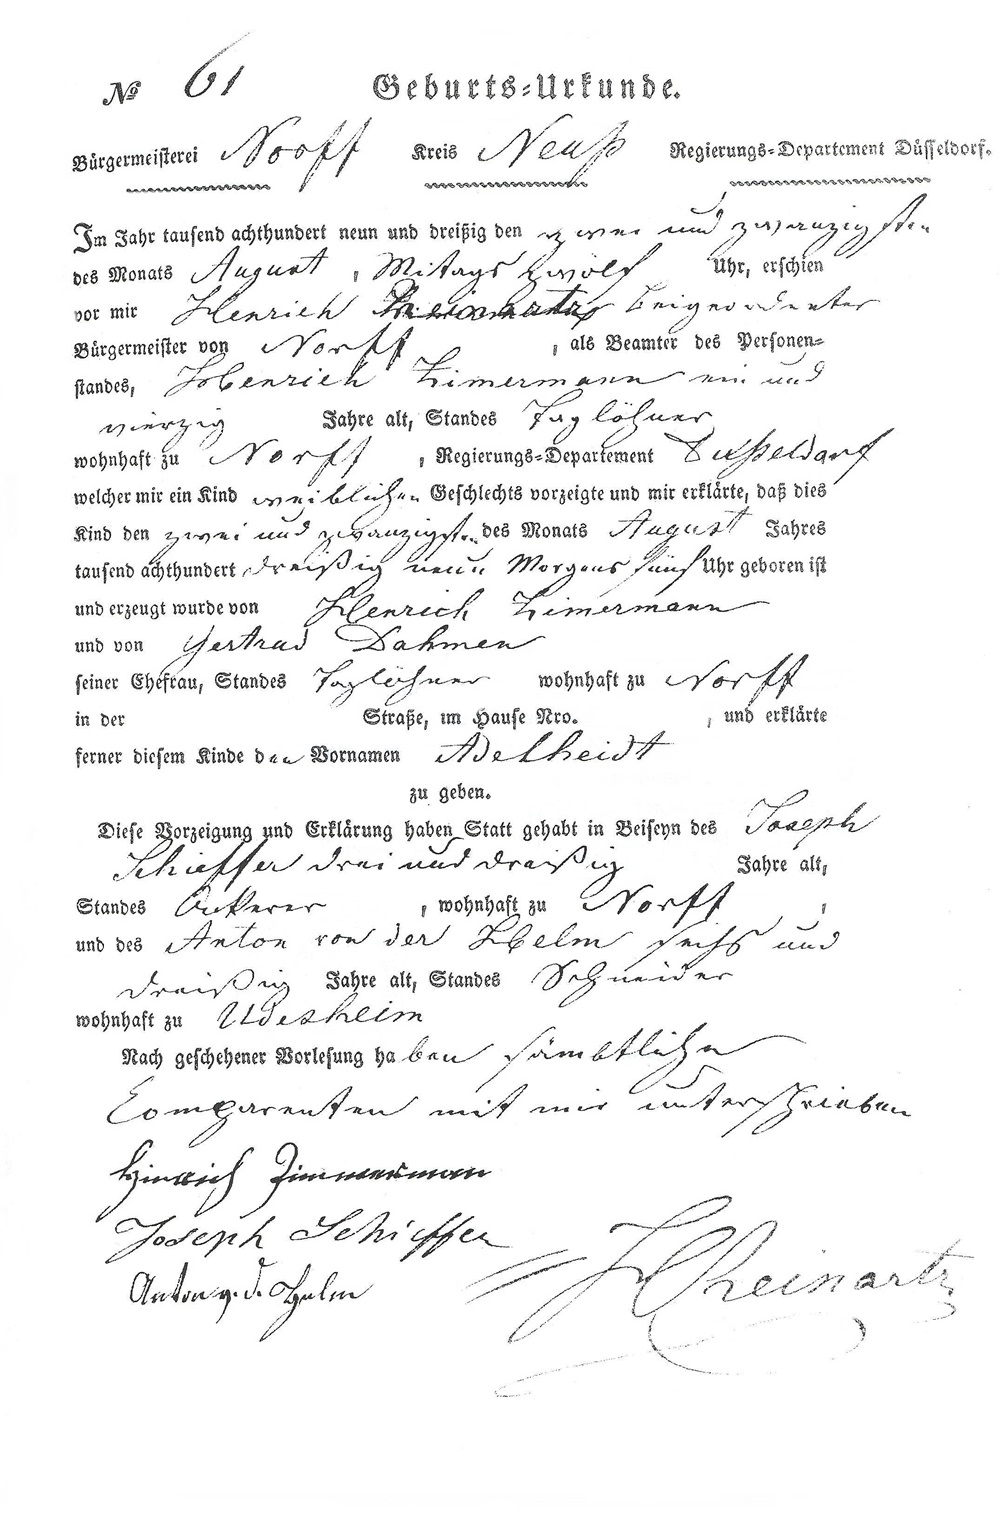 No 61 Geburts-Urkunde.
Bürgermeisterei Norff Kreis Neuß Regierungs-Departement Düsseldorf.
Im Jahr tausend achthundert neun und dreißig den zwei und zwanzigsten
des Monats August, Mitags zwölf Uhr, erschien
vor mir Henrich Rheinartz beigeordneter
Bürgermeister von Norff, als Beamter des Personen-
standes, Henrich Zimermann ein und
vierzig Jahre alt, Standes Taglöhner
wohnhaft zu Norff, Regierungs-Departement Dußeldorf
welcher mir ein Kind weiblichen Geschlechts vorzeigte und mir erklärte, daß dies
Kind den zwei und zwanzigsten des Monats August Jahres
tausend achthundert dreißig neun Morgens fünf Uhr geboren ist
und erzeugt wurde von Henrich Zimermann
und von Gertrud Dahmen
seiner Ehefrau, Standes Taglöhner wohnhaft zu Norff
in der Straße, im Hause Nro. , und erklärte
ferner diesem Kinde den Vornamen Adelheidt
zu geben.
Diese Vorzeigung und Erklärung haben Statt gehabt in Beiseyn des Joseph
Schieffer drei und dreißig Jahre alt,
Standes Ackerer, wohnhaft zu Norff,
und des Anton von der Helm sechs und
dreißig Jahre alt, Standes Schneider
wohnhaft zu Udesheim
Nach geschehener Vorlesung haben sämbtliche
Comparenten mit mir unterschrieben
Hinrich Zimmerman
Joseph Schieffer
Anton v. d. Helm
H Rheinartz